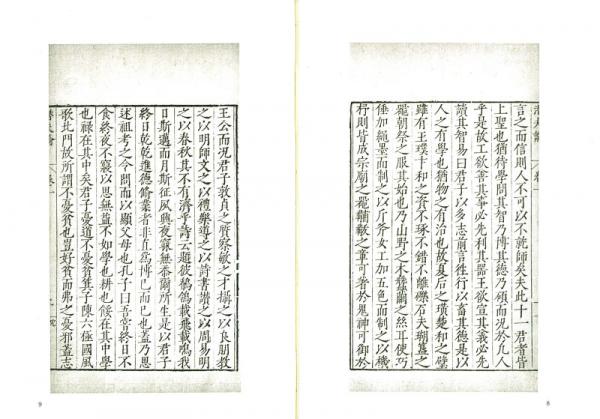 言之而信則人不可以不就師矣夫此十一君者皆
上聖也猶待學問其智乃博其德乃碩而況於凡人
乎是故工欲善其事必先利其器王欲宣其義必先
讀其智易曰君子以多志前言往行以畜其德是以
人之有學也猶物之有治也故夏后之璜楚和之璧
雖有玉璞卞和之資不琢不錯不離礫石夫瑚簋之
器朝祭之服其始也乃山野之木蠶繭之絲耳使巧
倕加繩墨而制之以斤斧女工加五色而制之以機
杼則皆成宗廟之器黼黻之章可羞於鬼神可御於
8
王公而況君子敦貞之質察敏之才攝之以良朋教
之以明師文之以禮樂導之以詩書讚之以周易明
之以春秋其不有濟乎詩云題彼鶺鴒載飛載鳴我
日斯邁而月斯征夙興夜寐無忝爾所生是以君子
終日乾乾進德脩業者非直為博已而已也蓋乃思
述祖考之令問而以顯父母也孔子曰吾嘗終日不
食終夜不寢以思無益不如學也耕也餒在其中學
也祿在其中矣君子憂道不憂貧箕子陳六極國風
歌北門故所謂不憂貧也豈好貧而弗之憂邪蓋志
9